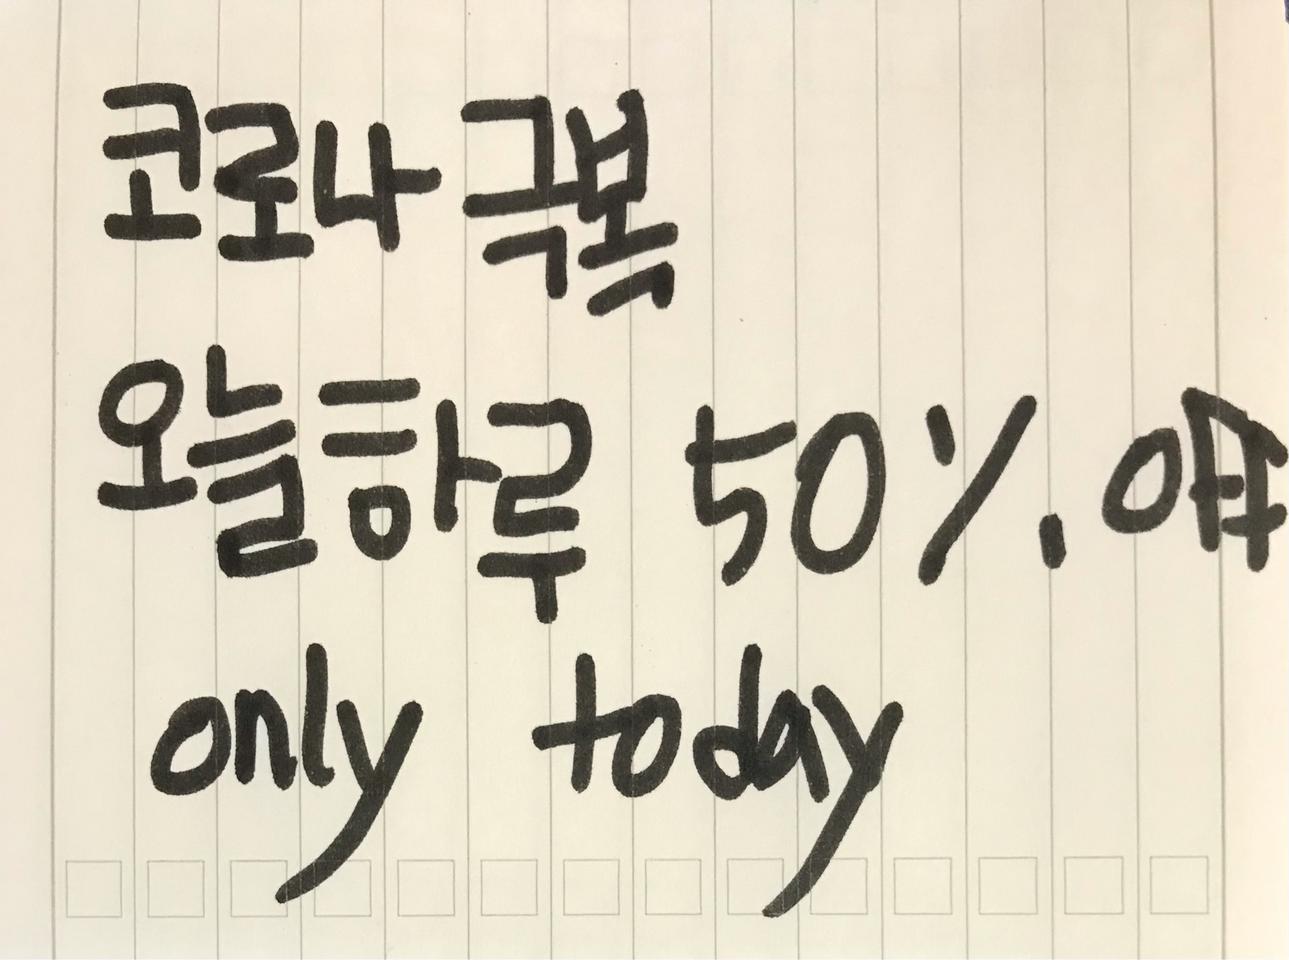 코로나 극복
오늘하루 50%. off
only today